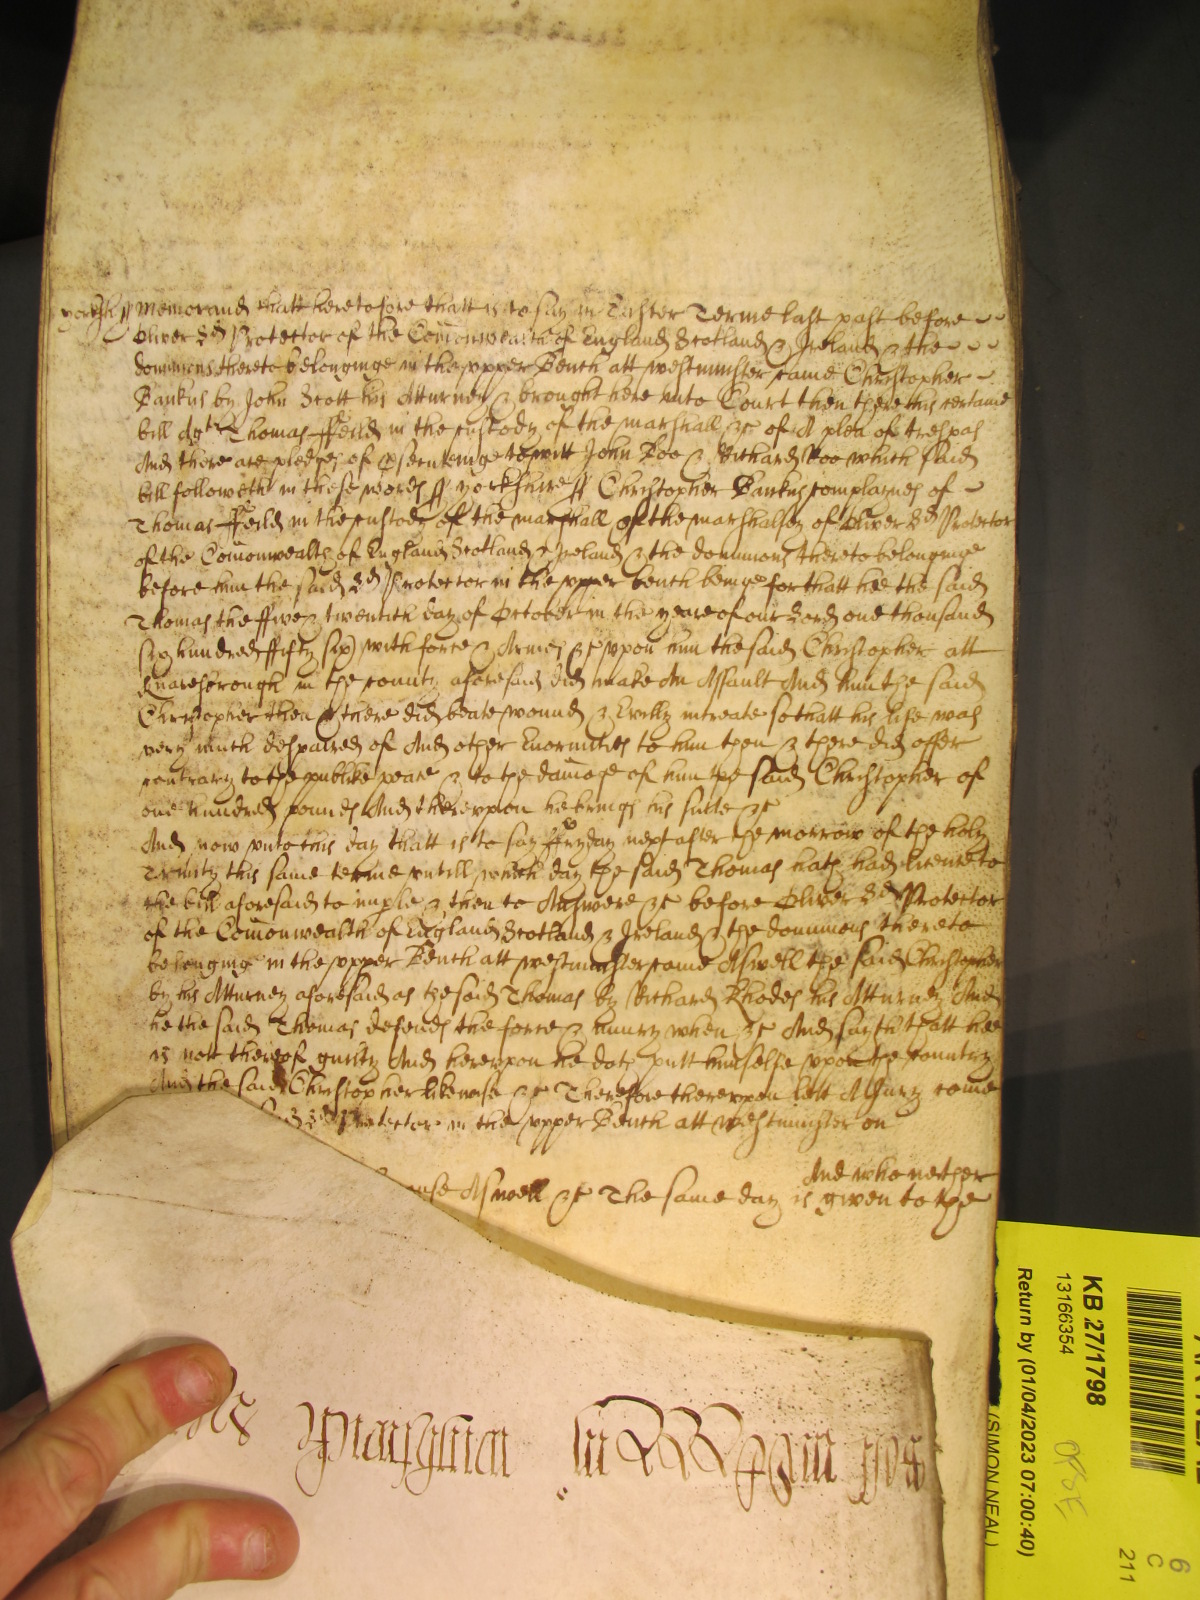 yorksh ss Memorand thatt heretofore thatt is to say in Easter Terme last past before
Oliver Ld Protector of the Comonwealth of England Scotland & Ireland & the
dominions thereto belonginge in the vpper Bench att westminster came Christopher
Bankus by John Scott his Atturney & brought here into Court then there his certaine
bill agt Thomas ffeild in the custody of the marshall &c of A plea of trespas
And there are pledges of prsecuteinge to witt John Doe & Richard Roe which said
bill followeth in these words ss yorkshire ss Christopher Bankus complaynes of
Thomas ffeild in the custody of the marshall of the marshalsey of Oliver Ld Protector
of the Comonwealth of England Scotland & Ireland & the dominions thereto belonginge
before him the said Ld Protector in the vpper bench beinge for thatt hee the said
Thomas the ffive & twentith day of October in the yeare of our Lord one thousand
six hundred ffifty six with force & Armes &c vpon him the said Christopher att
Knaresbrough in the county aforesaid did make An Assault And him the said
Christopher then & there did beate wound & Evilly intreate so thatt his life was
very much despaired of And other Enormities to him then & there did offer
contrary to the publike peace & to the damage of him the said Christopher of
one hundred pounds And therevpon he brings his suite &c
And now vnto this day thatt is to say ffryday next after the morrow of the holy
Trinity this same terme vntill which day the said Thomas hath had licence to
the bill aforesaid to imple & then to Answere &c before Oliver Ld Protector
of the Comonwealth of England Scotland & Ireland & the dominions thereto
belonging in the vpper Bench att westminster came Aswell the said Christopher
by his Atturney aforesaid as the said Thomas by Richard Rhodes his Atturney And
he the said Thomas defends the force & iniury when &c And sayth thatt hee
is nott thereof guilty And herevpon he doth putt himselfe vpon the country
And the said Christopher likewise &c Therefore therevpon lett A Jury come
Ld Protector in the vpper Bench att westminster on
And who nether
Aswell &c The same day is given to the
KB 27/1798
13166354
Return by (01/04/2023 07:00:40)
(SIMON NEAL)
6
C
211